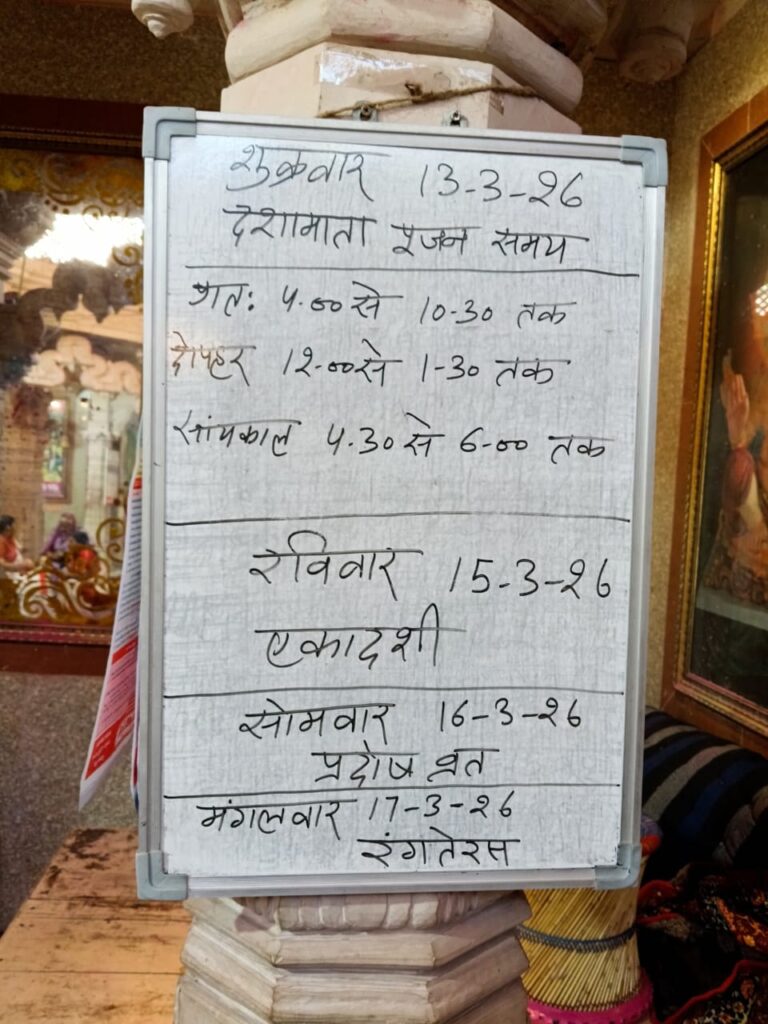 शुक्रवार 13-3-26
दशामाता पूजन समय
प्रात: 4.00 से 10-30 तक
दोपहर 12-00 से 1-30 तक
सांयकाल 4.30 से 6-00 तक
रविवार 15-3-26
एकादशी
सोमवार 16-3-26
प्रदोष व्रत
मंगलवार 17-3-26
रंगतेरस